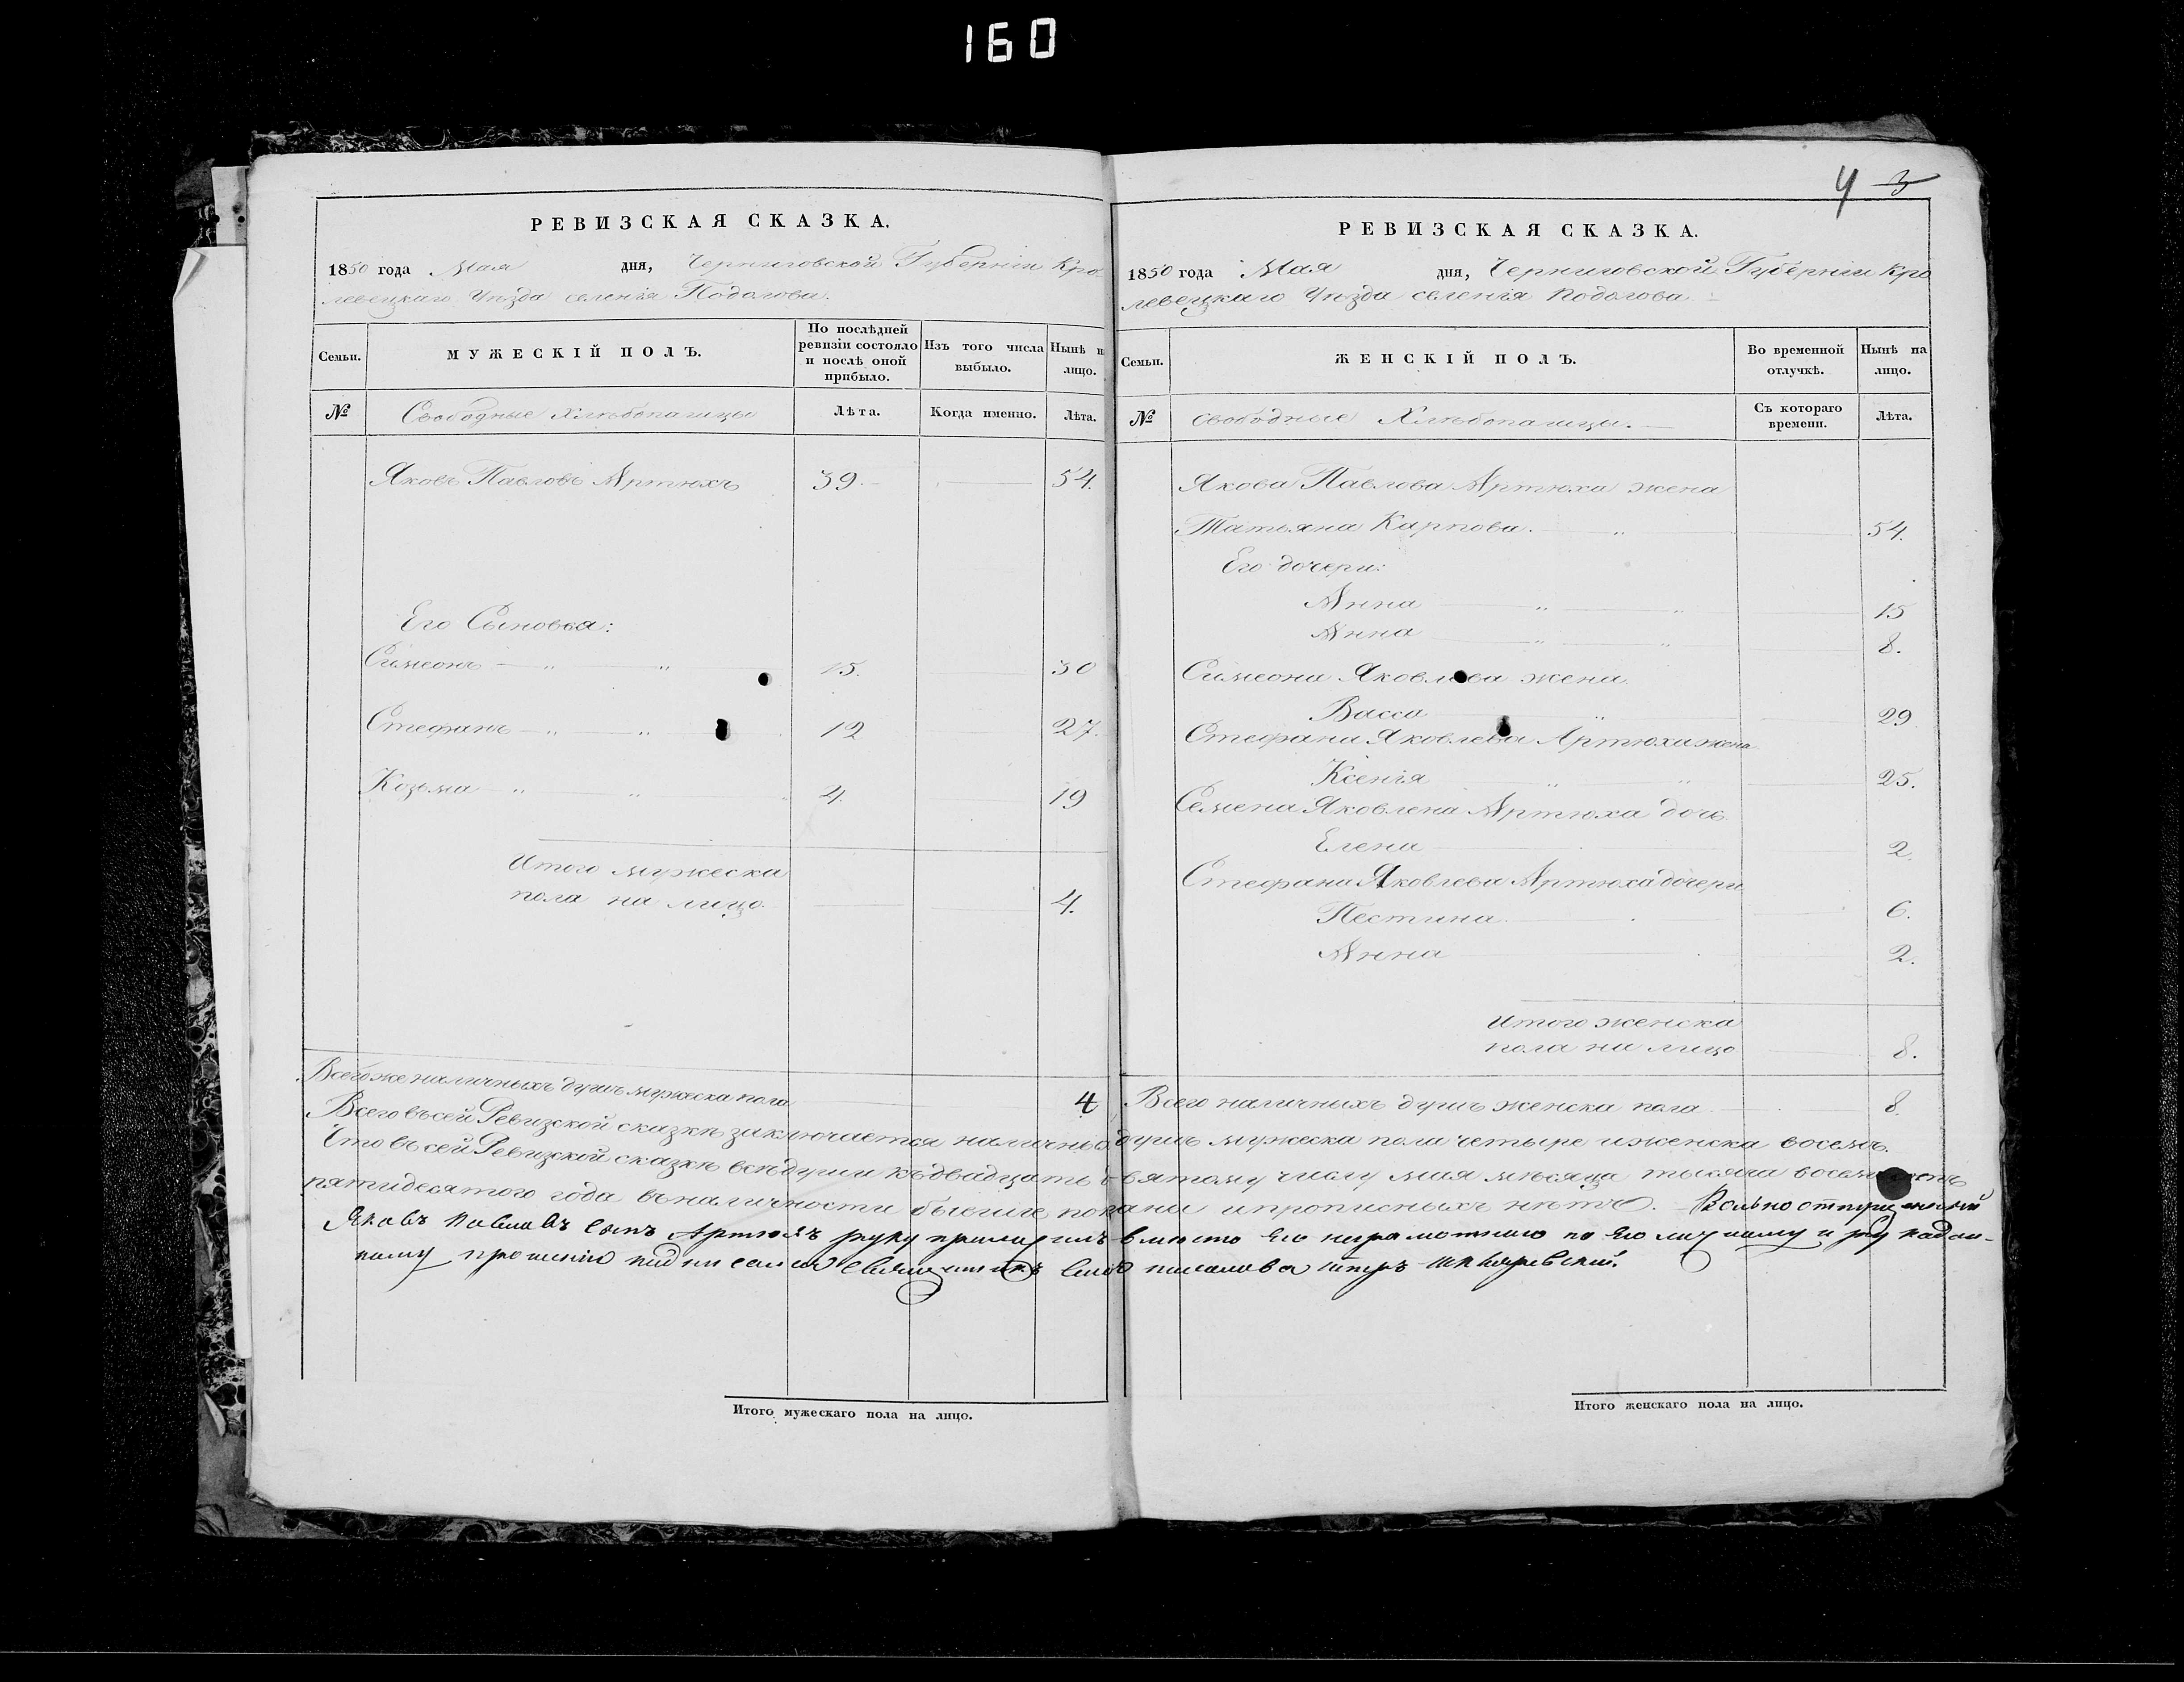 160
4 3
РЕВИЗСКАЯ СКАЗКА.
1850 года Мая дня, Черниговской Губерніи Кро
левецкаго Уѣзда селенія Подолова.
Семьи. МУЖЕСКІЙ ПОЛЪ. По послѣдней ревизіи состояло и послѣ оной прибыло. Изъ того числа выбыло. Нынѣ н лицо.
№ Свободные Хлѣбопашцы Лѣта. Когда именно. Лѣта.
Яковъ Павловъ Артюхъ 39. 54.
Его Сыновья:
Симеонъ 15. 30
Стефанъ 12 27.
Козьма 4. 19
Итого мужеска
пола на лицо. 4.
Всего же наличныхъ душъ мужеска пола 4
РЕВИЗСКАЯ СКАЗКА.
1850 года Мая дня, Черниговской Губерніи Кро
левецкаго Уѣзда селенія Подолова
Семьи. ЖЕНСКІЙ ПОЛЪ. Во временной отлучкѣ. Нынѣ на лицо.
№ Свободные Хлѣбопашцы. Съ котораго времени. Лѣта.
Якова Павлова Артюха жена
Татьяна Карпова. 54.
Его дочери:
Анна 15
Анна 8.
Симеона Яковлева жена
Васса 29
Стефана Яковлева Артюха жена
Ксенія 25.
Семена Яковлева Артюха дочь
Елена 2.
Стефана Яковлева Артюха дочери
Пестина 6.
Анна 2.
Итого женска
пола на лицо 8.
Всего наличныхъ душъ женска пола 8.
Всего въ сей Ревизской сказкѣ заключается наличныхъ душъ мужеска пола четыре и женска восемь.
Что въ сей Ревизской сказкѣ всѣ души къ двадцать девятому числу мая мѣсяца тысяча восемьсотъ
пятидесятого года въ наличности бывшіе показаны и прописныхъ нѣтъ. Вольноотпущенный
Яковъ Павловъ сынъ Артюхъ руку приложилъ вмѣсто его неграмотнаго по его личному и
прошенію подписался Священникъ села
Итого мужескаго пола на лицо.
Итого женскаго пола на лицо.